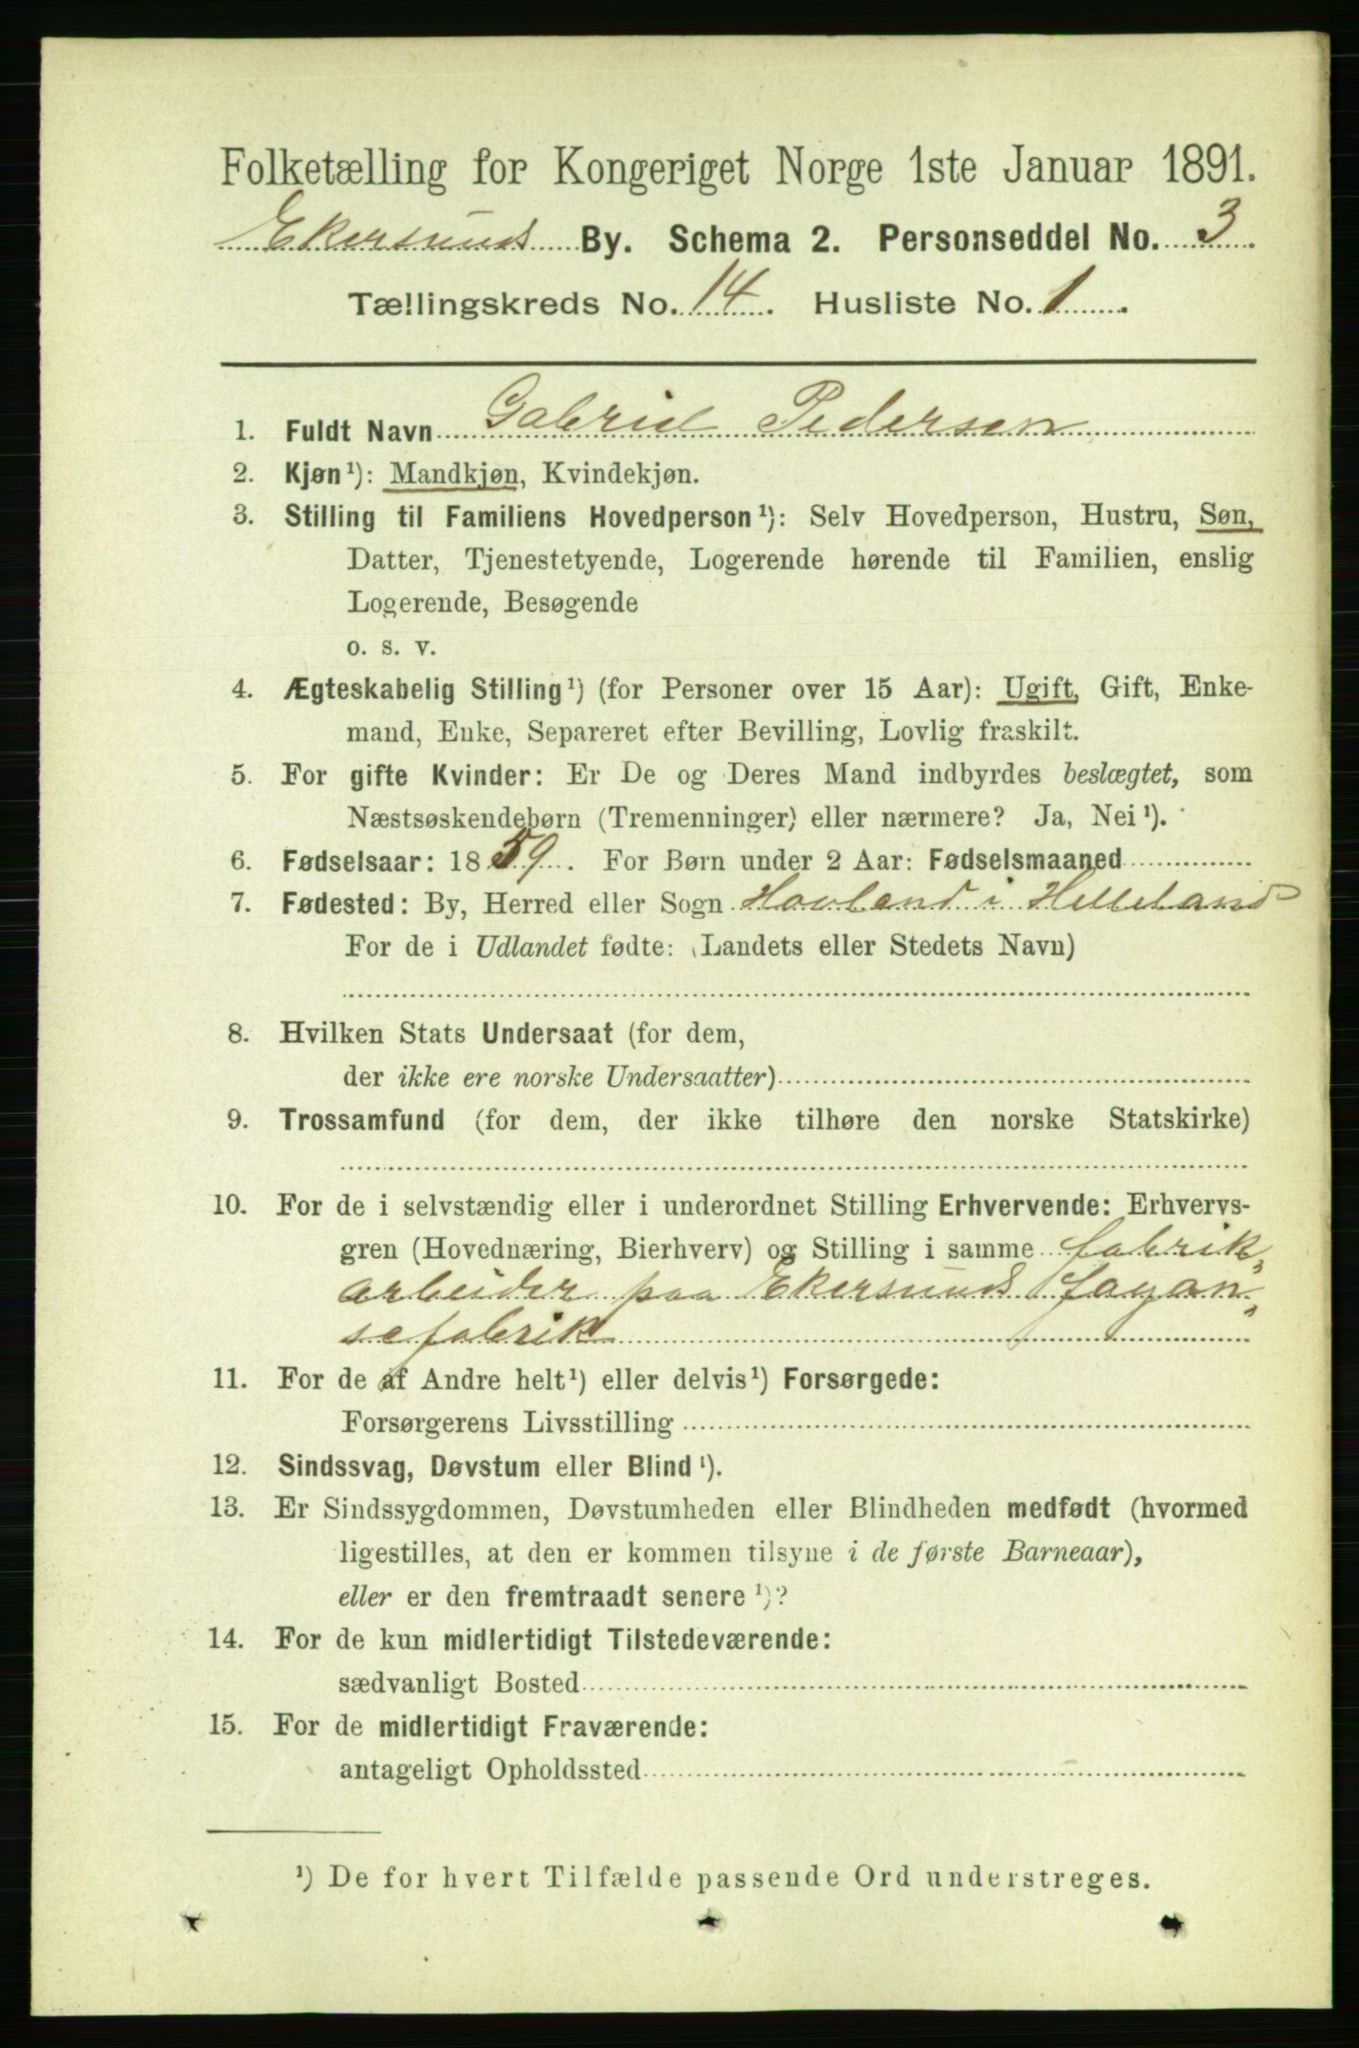 Folketælling for Kongeriget Norge 1ste Januar 1891.
Ekersunds By. Schema 2. Personseddel No. 3
Tællingskreds No. 14. Husliste No. 1.
1. Fuldt Navn Gabriel Pedersen
2. Kjøn¹): Mandkjøn, Kvindekjøn.
3. Stilling til Familiens Hovedperson¹): Selv Hovedperson, Hustru, Søn,
Datter, Tjenestetyende, Logerende hørende til Familien, enslig
Logerende, Besøgende
o. s. v.
4. Ægteskabelig Stilling¹) (for Personer over 15 Aar): Ugift, Gift, Enke-
mand, Enke, Separeret efter Bevilling, Lovlig fraskilt.
5. For gifte Kvinder: Er De og Deres Mand indbyrdes beslægtet, som
Næstsøskendebørn (Tremenninger) eller nærmere? Ja, Nei¹).
6. Fødselsaar: 1859. For Børn under 2 Aar: Fødselsmaaned
7. Fødested: By, Herred eller Sogn Hovland i Helleland
For de i Udlandet fødte: (Landets eller Stedets Navn)
8. Hvilken Stats Undersaat (for dem,
der ikke ere norske Undersaatter)
9. Trossamfund (for dem, der ikke tilhøre den norske Statskirke)
10. For de i selvstændig eller i underordnet Stilling Erhvervende: Erhvervs-
gren (Hovednæring, Bierhverv) og Stilling i samme fabrik-
arbeider paa Ekersunds fayan-
sefabrik
11. For de af Andre helt¹) eller delvis¹) Forsørgede:
Forsørgerens Livsstilling
12. Sindssvag, Døvstum eller Blind¹).
13. Er Sindssygdommen, Døvstumheden eller Blindheden medfødt (hvormed
ligestilles, at den er kommen tilsyne i de første Barneaar),
eller er den fremtraadt senere¹)?
14. For de kun midlertidigt Tilstedeværende:
sædvanligt Bosted
15. For de midlertidigt Fraværende:
antageligt Opholdssted
¹) De for hvert Tilfælde passende Ord understreges.